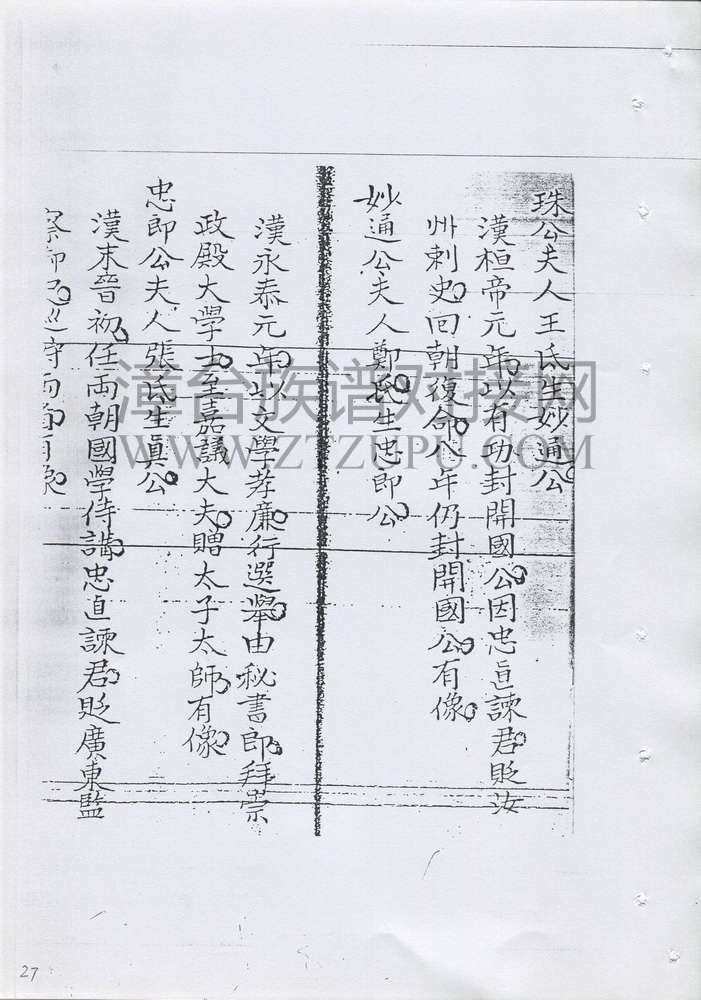 珠公夫人王氏生妙通公
漢桓帝元年以有功封開國公因忠直諫君貶汝
州刺史回朝復命八年仍封開國公有像
妙通公夫人鄭氏生忠郎公
漢永泰元年以文學孝廉行選舉由秘書郎拜崇
政殿大學士至嘉議大夫贈太子太師有像
忠郎公夫人張氏生真公
漢末晉初任兩朝國學侍講忠直諫君貶廣東監
漳台族谱对接网
WWW.ZTZUPU.COM
27